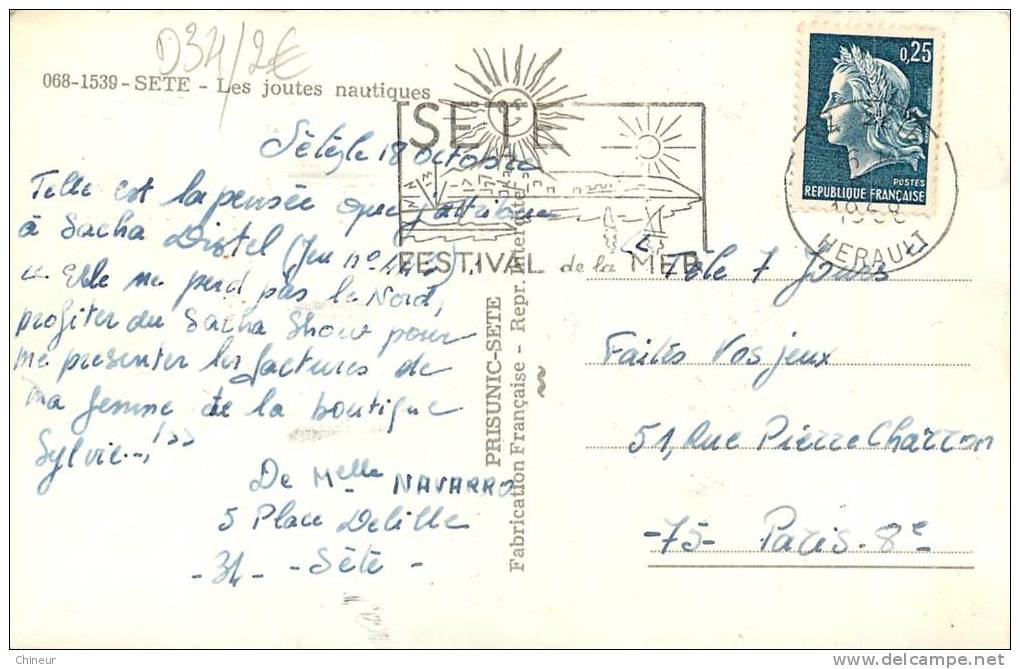 D34/2€
068-1539 - SETE - Les joutes nautiques
SETE
FESTIVAL de la MER
0,25
POSTES
REPUBLIQUE FRANÇAISE
1968
HERAULT
Sète le 18 octobre
Telle est la pensée que j'attribue
à Sacha Distel (Jeu n°
" Elle ne perd pas le Nord,
profiter du Sacha Show pour
me présenter les factures de
ma femme de la boutique
Sylvie..!"
De Melle NAVARRO
5 Place Delille
-34- - Sète -
PRISUNIC-SETE
Fabrication Française - Repr. Interdite
Télé 7 Jours
Faites Vos jeux
51, Rue Pierre Charron
-75- Paris-8e
Chineur
delcampe.net